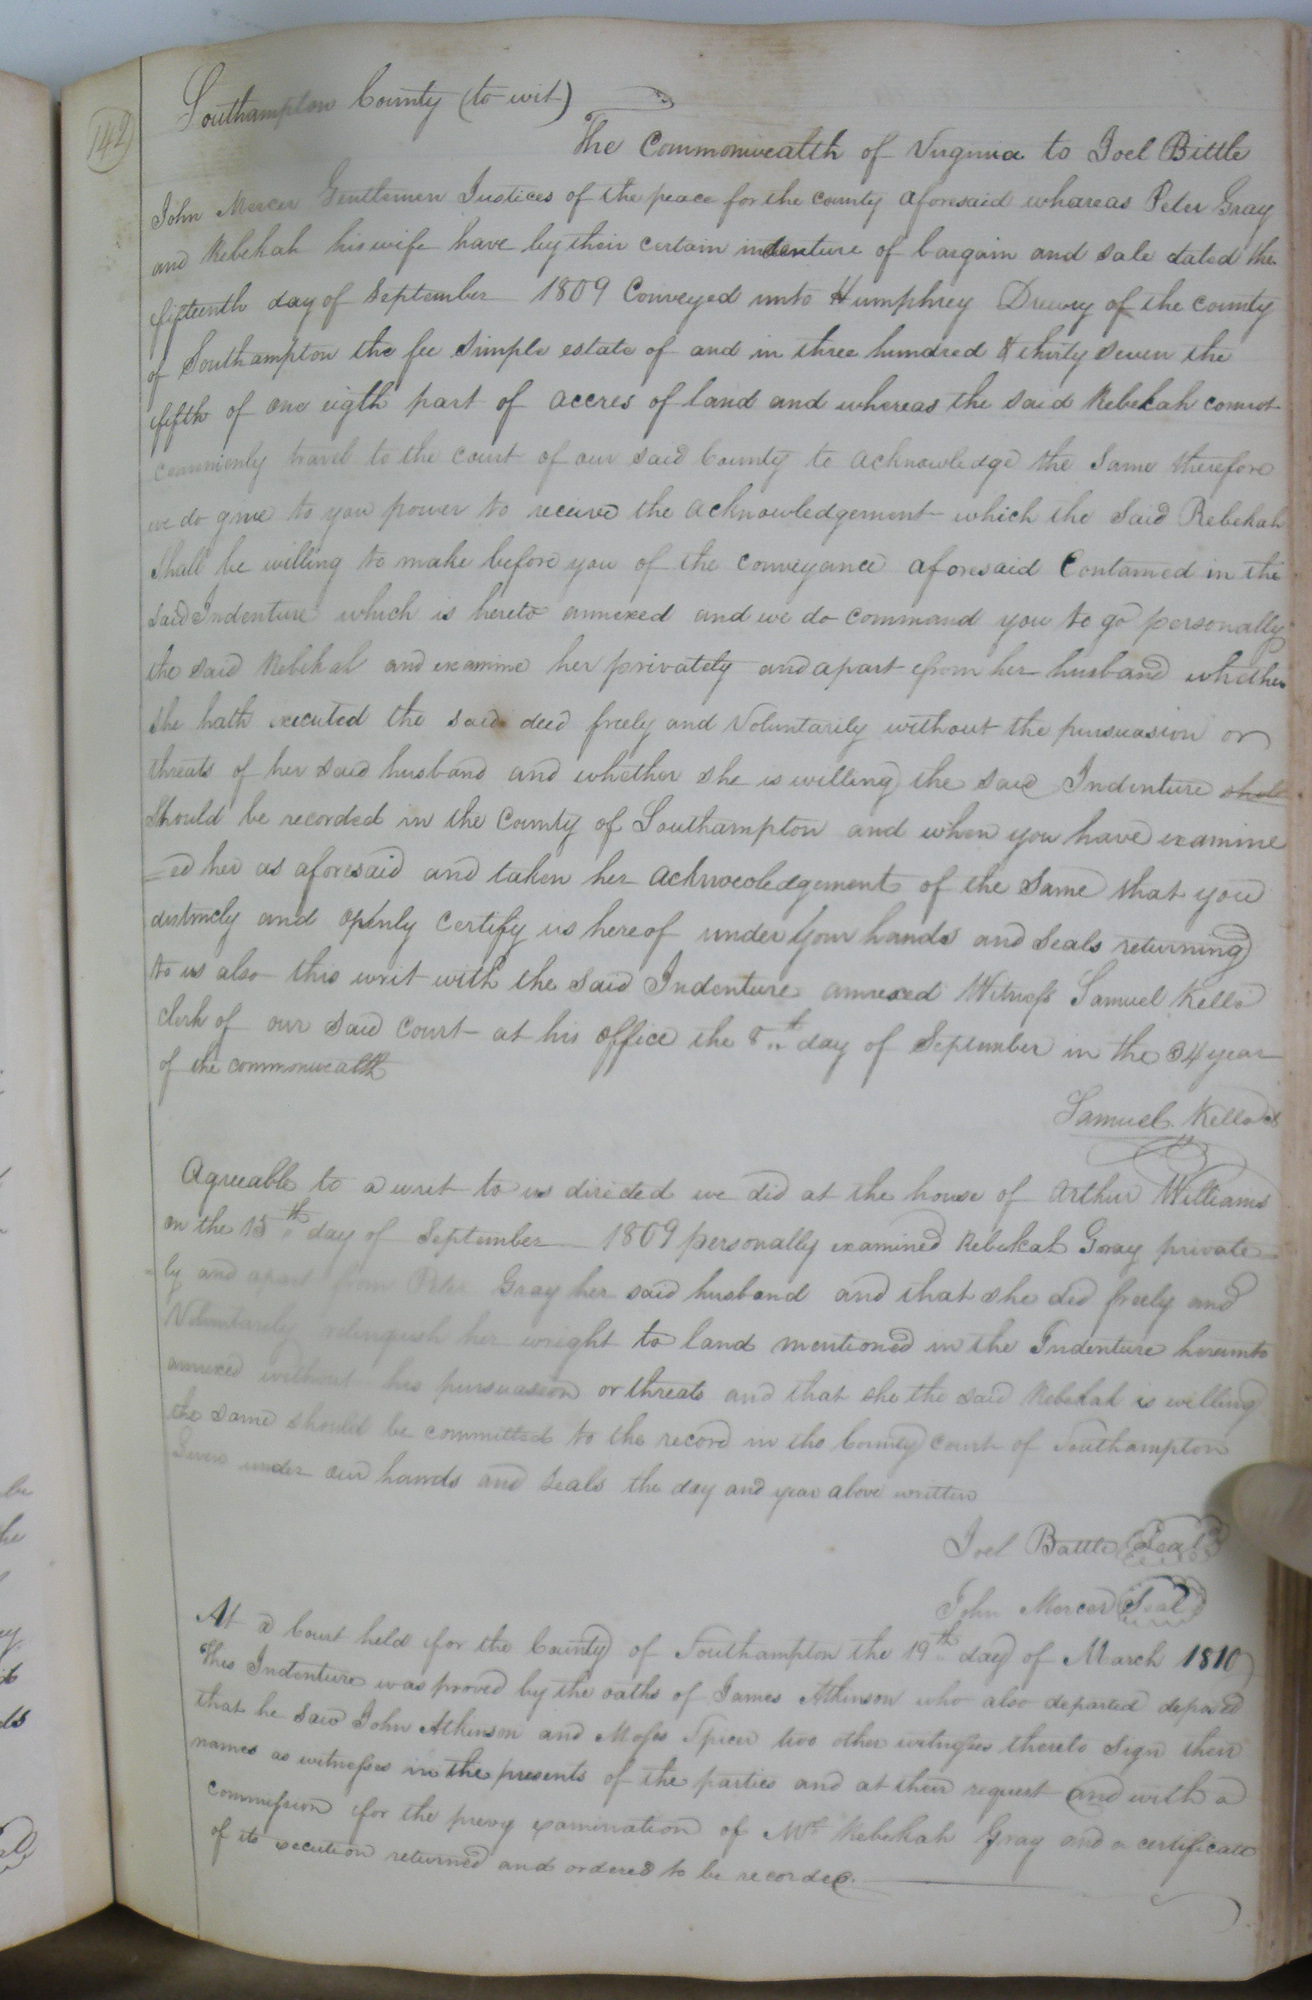 142
Southampton County (to wit)
The Commonwealth of Virginia to Joel Bittle
John Mercer Gentlemen Justices of the peace for the county aforesaid whareas Peter Gray
and Rebekah his wife have by their certain indenture of bargain and sale dated the
fifteenth day of September 1809 Conveyed unto Humphrey Drewry of the county
of Southampton the fee simple estate of and in three hundred & thirty seven the
fifth of one eigth part of accres of land and whereas the said Rebekah connot
conveniently travel to the court of our said County to acknowledge the same therefore
we do give to you power to receive the acknowledgement which the said Rebekah
shall be willing to make before you of the conveyance aforesaid Contained in the
said Indenture which is hereto annexed and we do command you to go personally
the said Rebekah and examine her privately and apart from her husband whether
she hath executed the said deed freely and Voluntarily without the pursuasion or
threats of her said husband and whether she is willing the said Indenture shall
should be recorded in the County of Southampton and when you have examine
=ed her as aforesaid and taken her acknowledgement of the same that you
distincly and openly certify us hereof under your hands and seals returning
to us also this writ with the said Indenture annexed Witness Samuel Kello
clerk of our said court at his office the 8th day of September in the 34 year
of the commonwealth
Samuel Kello
Agreeable to a writ to us directed we did at the house of Arthur Williams
on the 15th day of September 1809 personally examined Rebekah Gray private
=ly and apart from Peter Gray her said husband and that she did freely and
Voluntarily relinquish her wright to land mentioned in the Indenture hereunto
annexed without his pursuasion or threats and that she the said Rebekah is willing
the same should be committed to the record in the County court of Southampton
Given under our hands and seals the day and year above written
Joel Battle Seal
John Mercer Seal
At a Court held for the County of Southampton the 19th day of March 1810
This Indenture was proved by the oaths of James Atkinson who also departed deposed
that he saw John Atkinson and Moses Spicer two other witnesses thereto sign their
names as witnesses in the presents of the parties and at their request and with a
commission for the prevy examination of Mrs Rebekah Gray and a certificate
of its execution returned and ordered to be recorded.